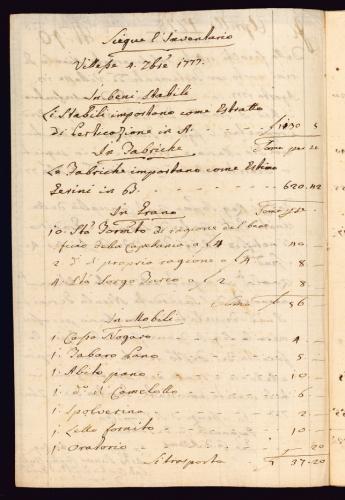 Siegue l'Inventario
Villesse 4. Xbre 1777.
In beni Stabili
Li Stabili importano come Estratto
di Perticazione in A. - - - 1430 5
In Fabriche Somo per se
Le Fabriche importano come Estimo
Pesini in B. - - - 620.112
In Grano Somo per se
10. Sta Formto di ragione del bene
ficio della Capellania a £4 40 -
2 do di propria ragione a £4 8 -
4 Sta Sorgo Turco a £2. 8 -
Somo 56
In Mobili
1. Cassa Nogara 4 -
1. Tabaro Pano 5 -
1. Abito pano 10 -
1. do di Camelotto 6 -
1. Spolverina 2 -
1. Letto fornito 10 -
1. Oratorio - 20
Si trasporta 37.20